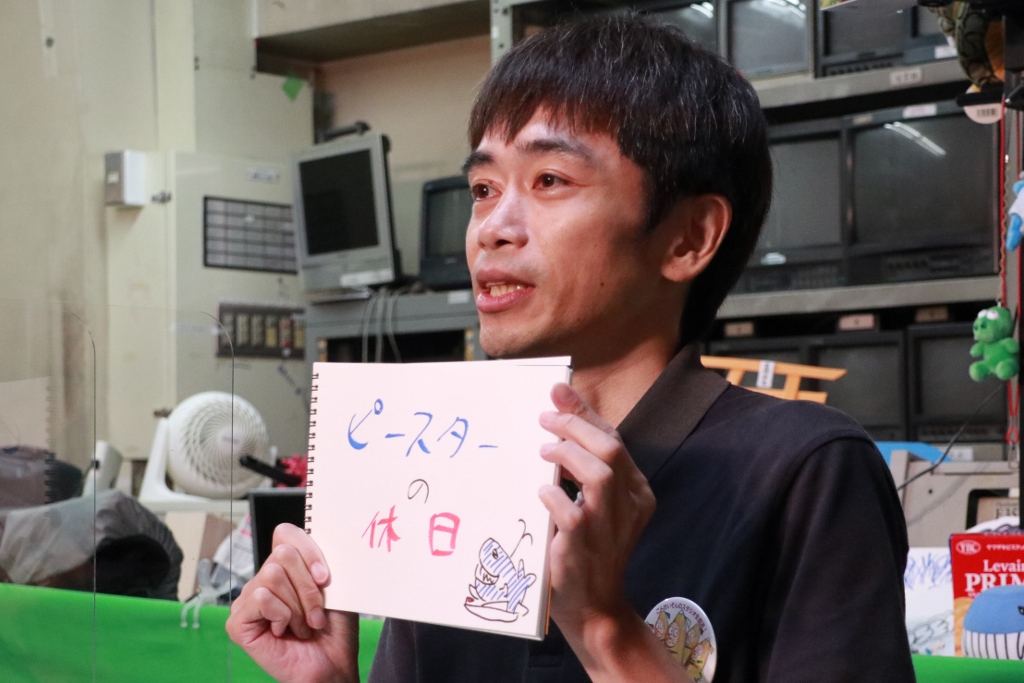 ピースター
の
休日
YBC
Levain
PRIM